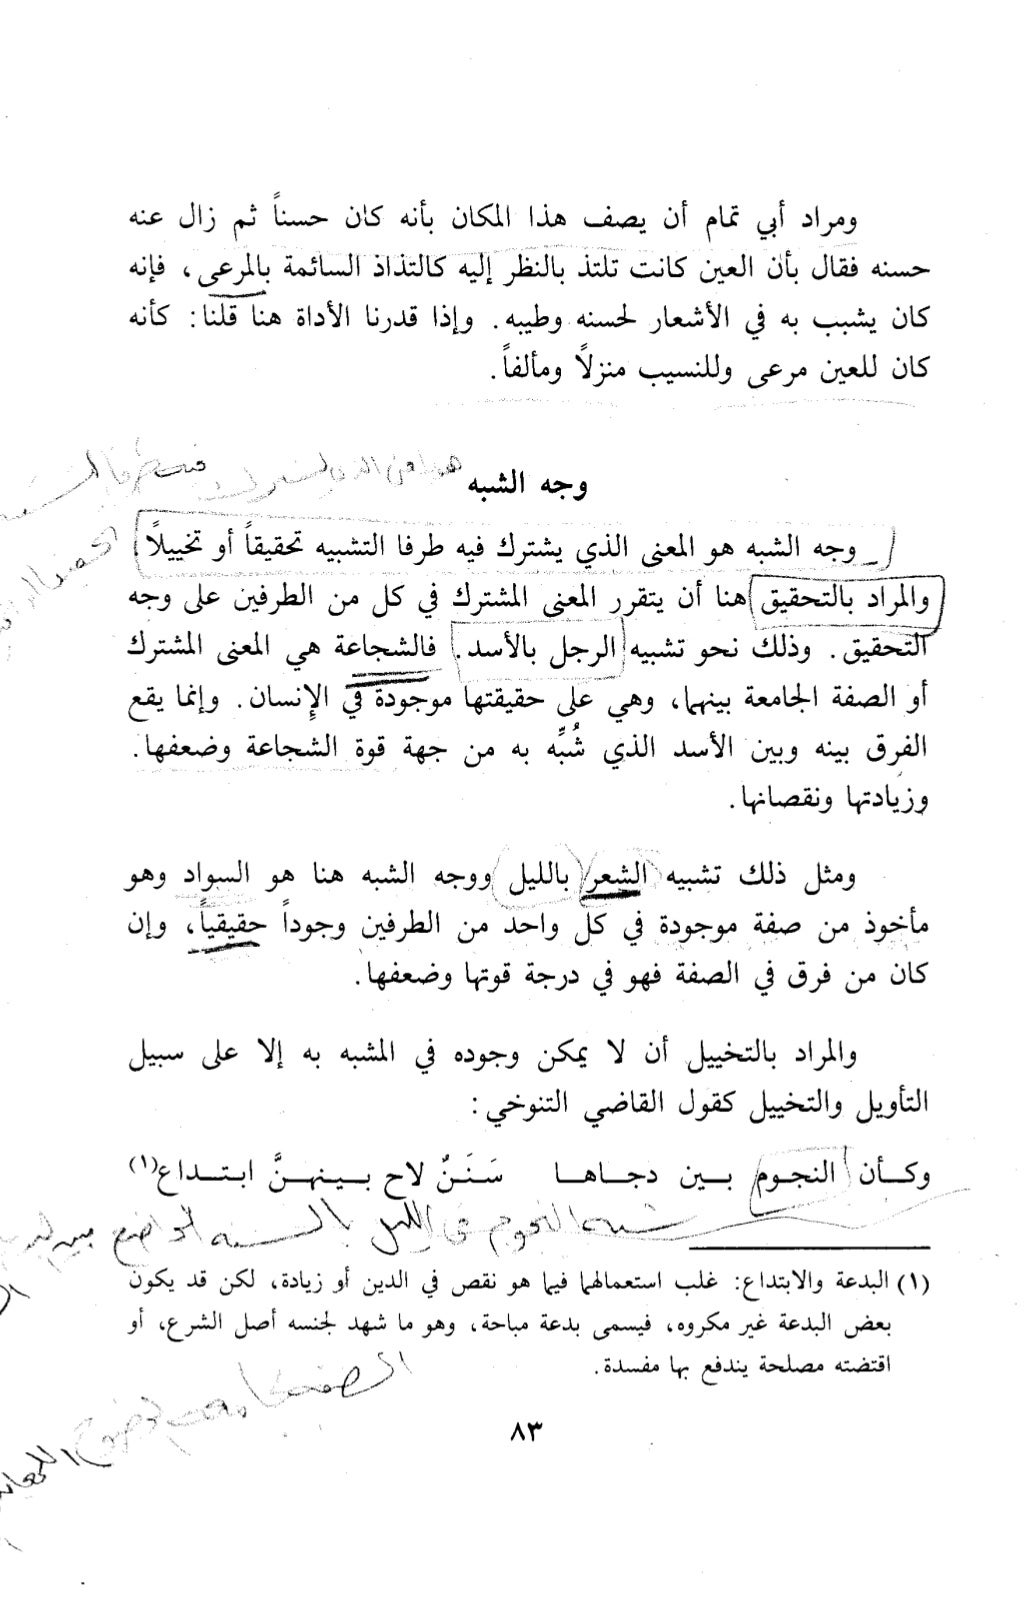 ومراد أبي تمام أن يصف هذا المكان بأنه كان حسناً ثم زال عنه
حسنه فقال بأن العين كانت تلتذ بالنظر إليه كالتذاذ السائمة بالمرعى، فإنه
كان يشبب به في الأشعار لحسنه وطيبه. وإذا قدرنا الأداة هنا قلنا: كأنه
كان للعين مرعى وللنسيب منزلاً ومألفاً.
وجه الشبه
وجه الشبه هو المعنى الذي يشترك فيه طرفا التشبيه تحقيقاً أو تخييلاً
والمراد بالتحقيق هنا أن يتقرر المعنى المشترك في كل من الطرفين على وجه
التحقيق. وذلك نحو تشبيه الرجل بالأسد. فالشجاعة هي المعنى المشترك
أو الصفة الجامعة بينهما، وهي على حقيقتها موجودة في الإنسان. وإنما يقع
الفرق بينه وبين الأسد الذي شُبِّه به من جهة قوة الشجاعة وضعفها.
وزيادتها ونقصانها.
ومثل ذلك تشبيه الشعر بالليل ووجه الشبه هنا هو السواد وهو
مأخوذ من صفة موجودة في كل واحد من الطرفين وجوداً حقيقياً، وإن
كان من فرق في الصفة فهو في درجة قوتها وضعفها.
والمراد بالتخييل أن لا يمكن وجوده في المشبه به إلا على سبيل
التأويل والتخييل كقول القاضي التنوخي:
وكأن النجوم بين دجاها سَنَنٌ لاح بينهنَّ ابتداع(١)
النجوم في الليل
(١) البدعة والابتداع: غلب استعمالهما فيما هو نقص في الدين أو زيادة، لكن قد يكون
بعض البدعة غير مكروه، فيسمى بدعة مباحة، وهو ما شهد لجنسه أصل الشرع، أو
اقتضته مصلحة يندفع بها مفسدة.
٨٣